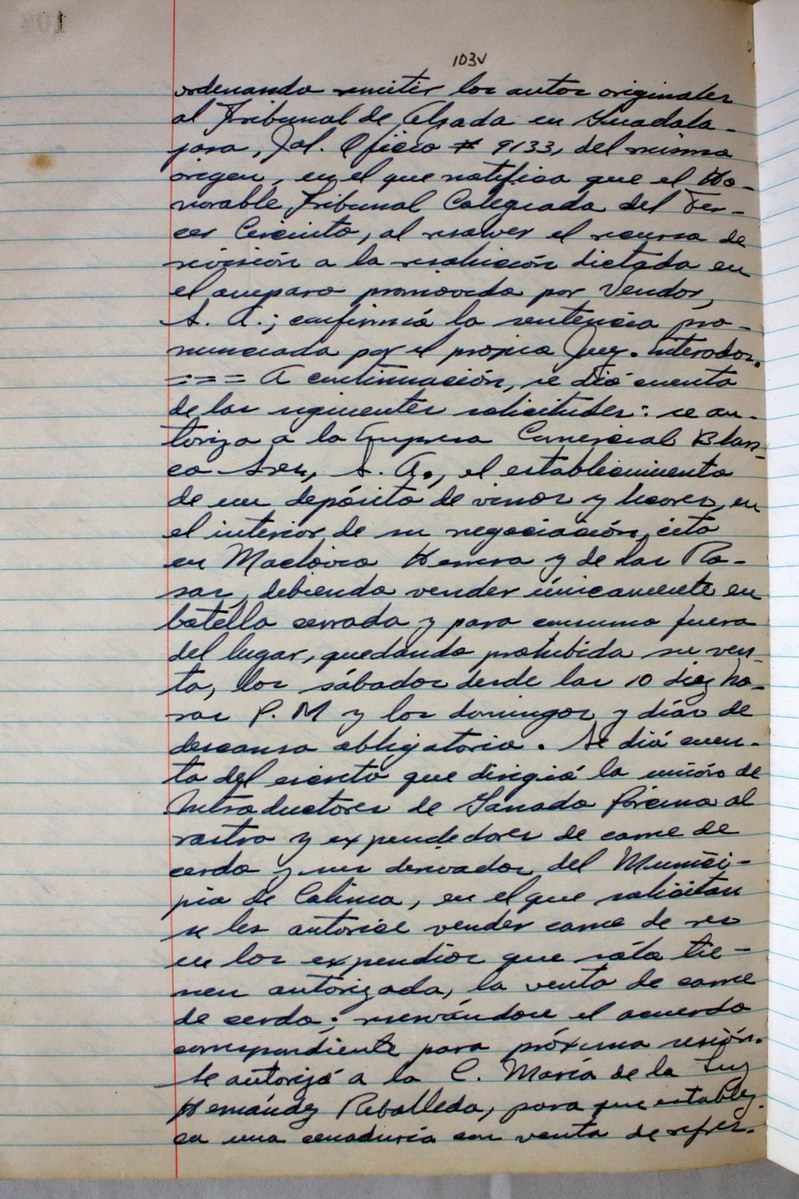 103v
ordenando remitir los autos originales
al Tribunal de Alzada en Guadala-
jara, Jal. Oficio # 9133, del mismo
origen, en el que notifica que el Ho-
norable Tribunal Colegiado del Ter-
cer Circuito, al resolver el recurso de
revisión a la resolución dictada en
el amparo promovido por Vendor,
S. A.; confirmó la sentencia pro-
nunciada por el propio Juez. Enterados.
=== A continuación, se dió cuenta
de las siguientes solicitudes: se au-
toriza a la Empresa Comercial Blan-
co S. A., el establecimiento
de un depósito de vinos y licores, en
el interior de su negociación, cita
en Maclovio Herrera y de las Ro-
sas, debiendo vender únicamente en
botella cerrada y para consumo fuera
del lugar, quedando prohibida su ven-
ta, los sábados desde las 10 diez ho-
ras P. M y los domingos y días de
descanso obligatorio. Se dió cuen-
ta del escrito que dirigió la unión de
Introductores de Ganado Porcino al
rastro y expendedores de carne de
cerdo y sus derivados, del Munici-
pio de Colima, en el que solicitan
se les autorice vender carne de res
en los expendios que sólo tie-
nen autorizada, la venta de carne
de cerdo; reservándose el acuerdo
correspondiente para próxima sesión.
Se autorizó a la C. María de la Luz
Hernández Reballeda, para que establez-
ca una cenaduría con venta de refres-